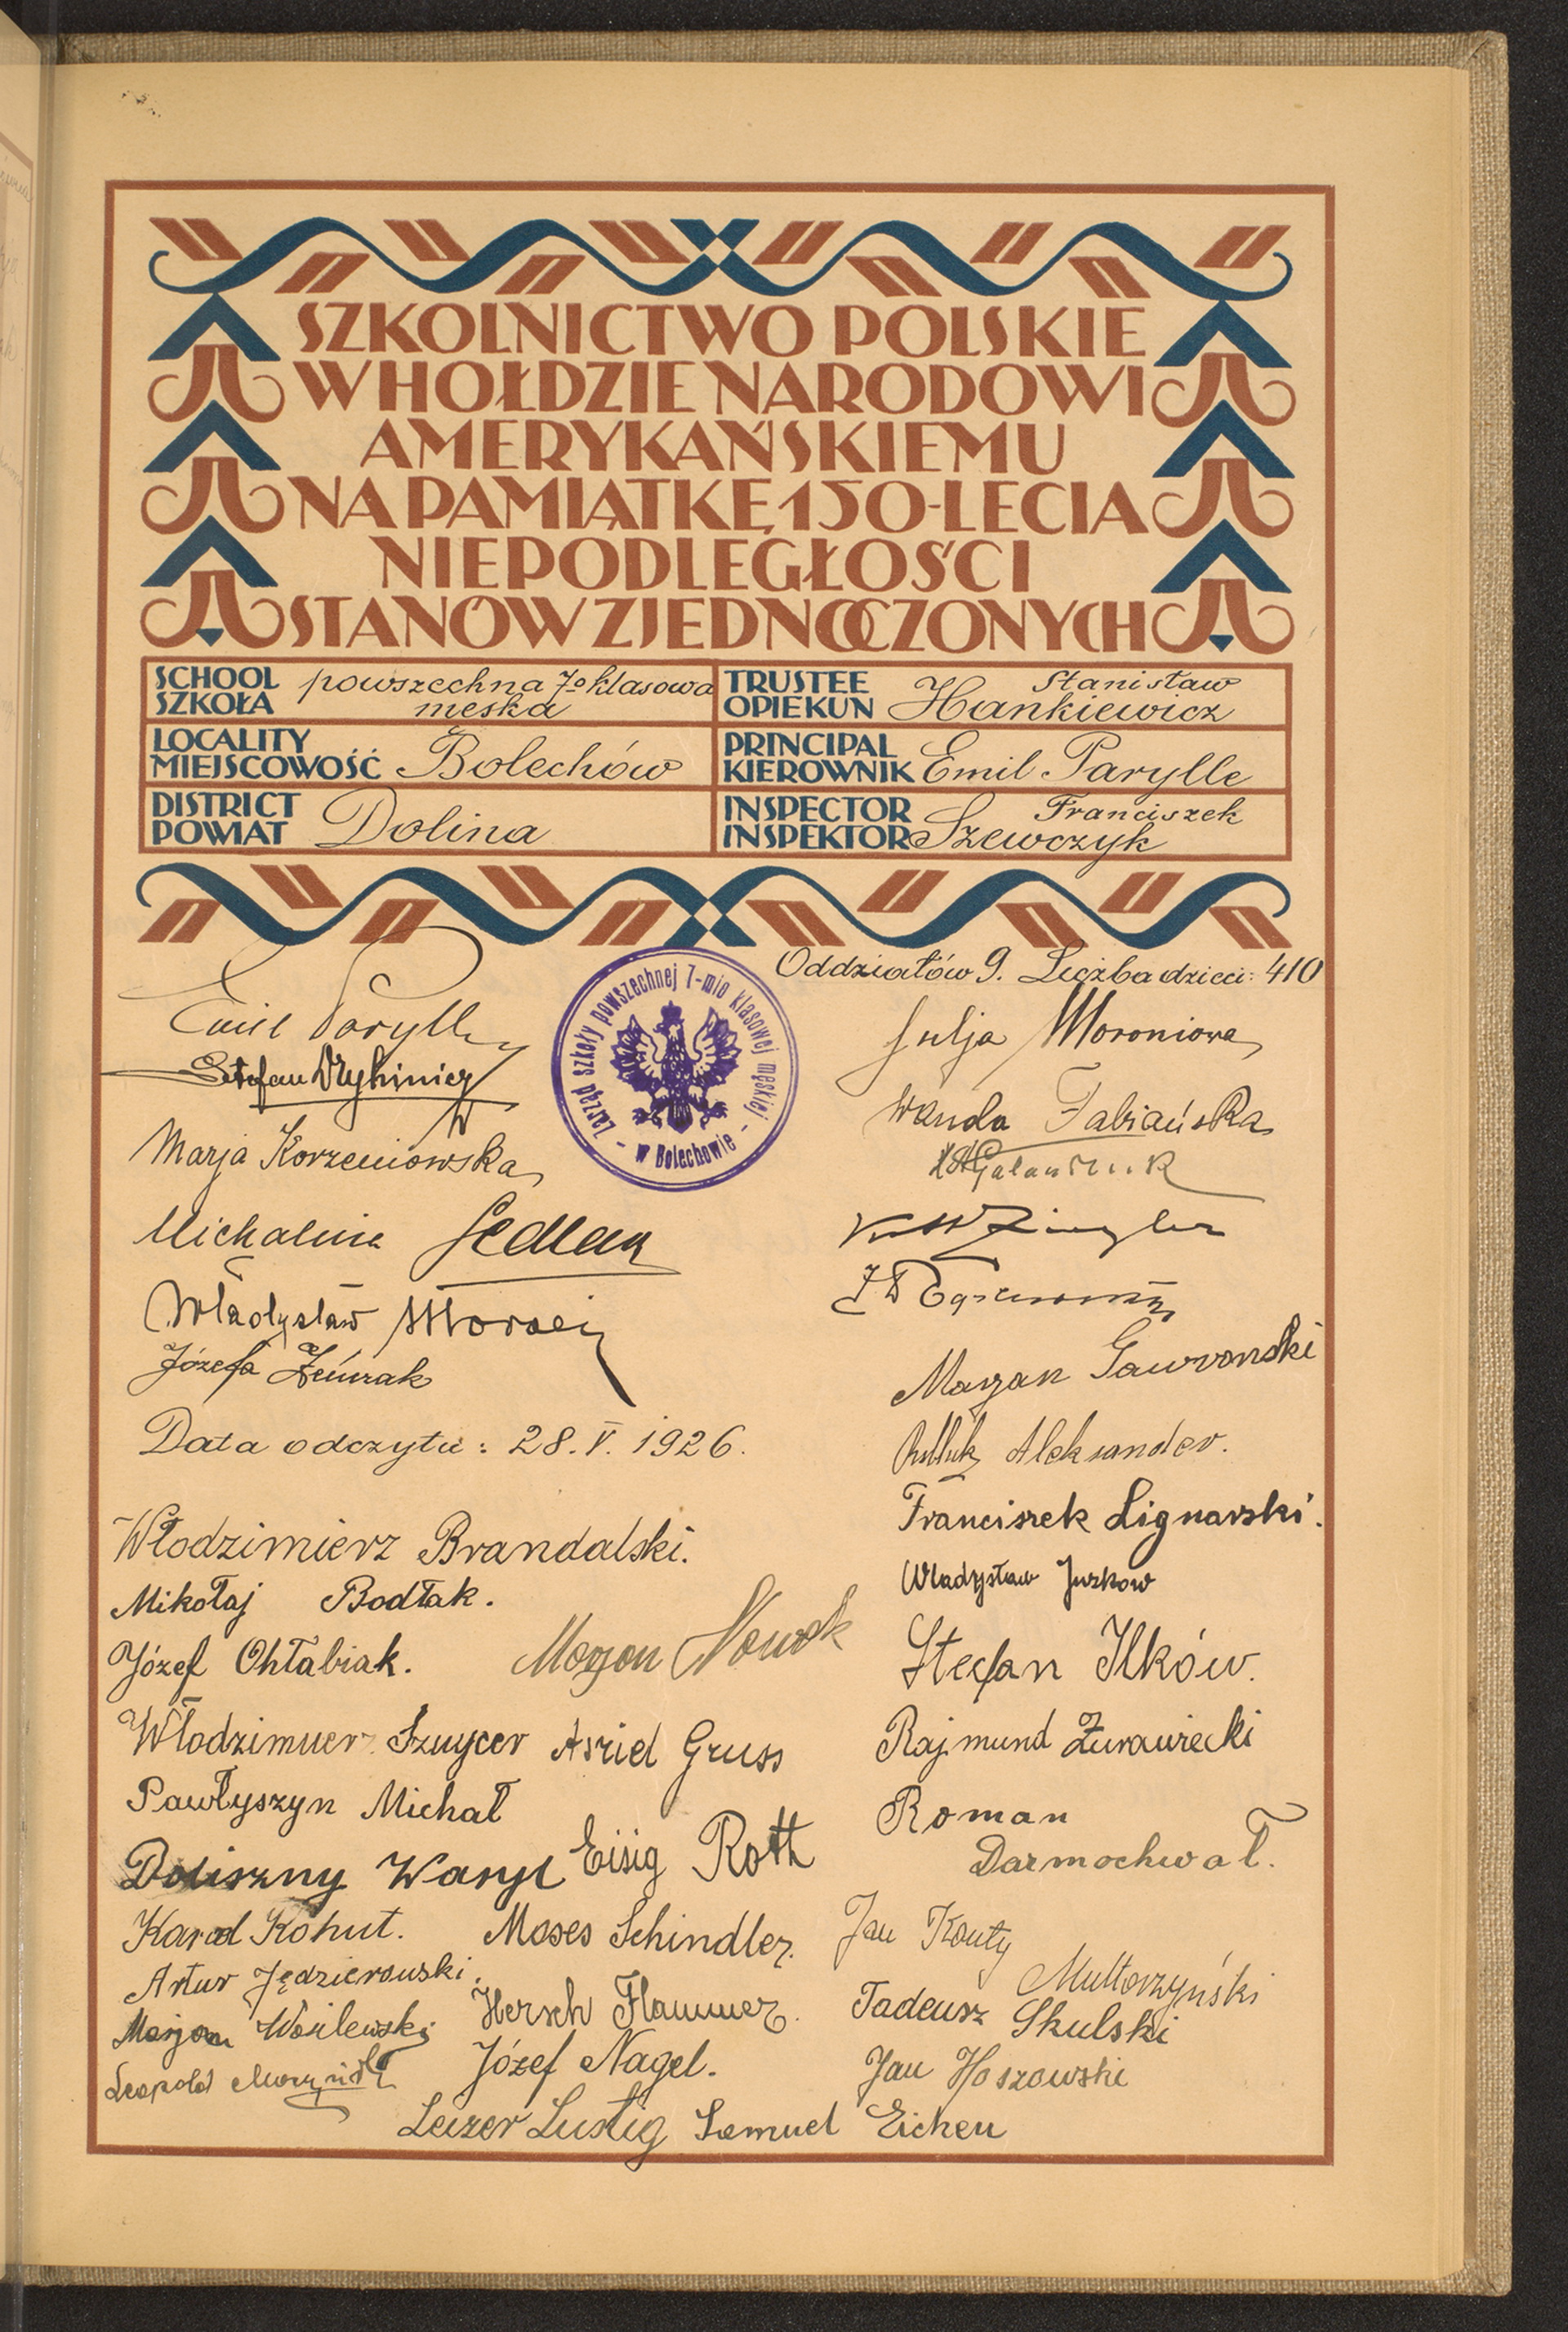 SZKOLNICTWO POLSKIE
W HOŁDZIE NARODOWI
AMERYKAŃSKIEMU
NA PAMIĄTKĘ 150-LECIA
NIEPODLEGŁOŚCI
STANÓW ZJEDNOCZONYCH
SCHOOL
SZKOŁA
powszechna 7o klasowa
męska
TRUSTEE
OPIEKUN
Stanisław
Hankiewicz
LOCALITY
MIEJSCOWOŚĆ
Bolechów
PRINCIPAL
KIEROWNIK
Emil Parylle
DISTRICT
POWIAT
Dolina
INSPECTOR
INSPEKTOR
Franciszek
Szewczyk
Oddziałów 9. Liczba dzieci: 410
Zarząd szkoły powszechnej 7-mio klasowej męskiej
- w Bolechowie -
Emil Parylle
Stefan
Marja Korzeniowska
Michalina Sedlak
Władysław
Józefa
Julja Moroniowa
Wanda Fabiańska
Ziegler
Data odczytu: 28. V. 1926.
Marjan Gawroński
Aleksander.
Franciszek Lignarski.
Władysław Jurkow
Stefan Ilków.
Rajmund Żurawiecki
Roman
Darmochwał.
Jan Kanty
Multorzyński
Tadeusz Skulski
Jan Hoszowski
Włodzimierz Brandalski.
Mikołaj Bodłak.
Józef Chłabiak.
Marjan Nowak
Włodzimierz Sznycer
Astid Gruss
Pawłyszyn Michał
Doliszny Wasyl
Eisig Roth
Karol Kohut.
Moses Schindler.
Artur Jędzierowski.
Hersch Flammer.
Marjan Wasilewski
Józef Nagel.
Leopold
Leizer Lustig
Samuel Eichen